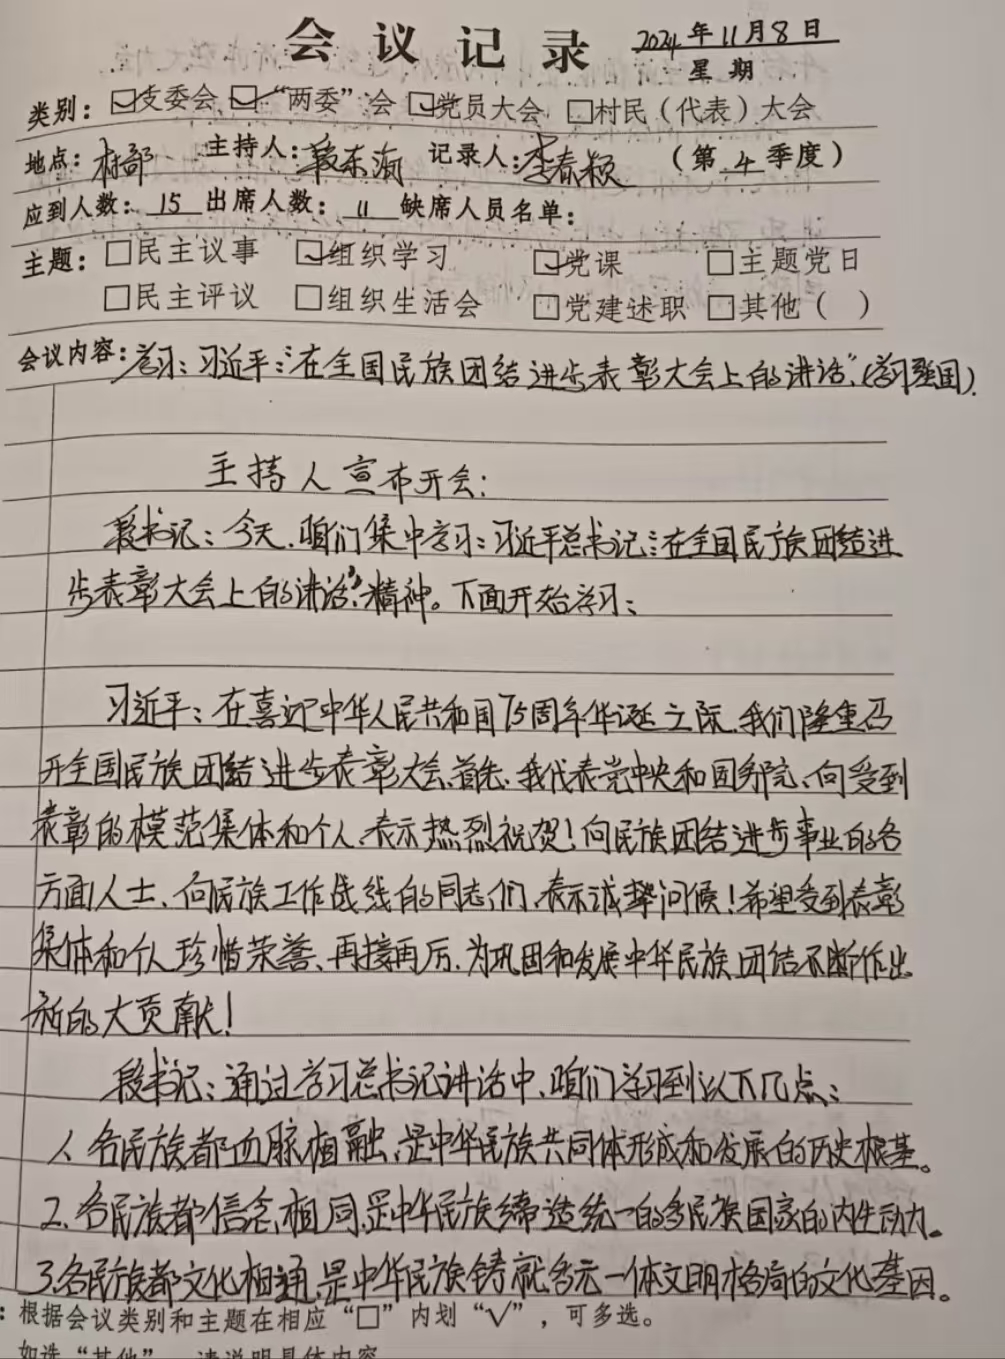 会议记录 2024年11月8日
星期
类别：☑支委会 ☑“两委”会 ☑党员大会 □村民（代表）大会
地点：村部 主持人：段东海 记录人：李春颖 （第4季度）
应到人数：15 出席人数：11 缺席人员名单：
主题：□民主议事 ☑组织学习 ☑党课 □主题党日
□民主评议 □组织生活会 □党建述职 □其他（ ）
会议内容：学习：习近平：“在全国民族团结进步表彰大会上的讲话”（学习强国）.
主持人宣布开会：
段书记：今天、咱们集中学习：习近平总书记：“在全国民族团结进
步表彰大会上的讲话”精神。下面开始学习：
习近平：在喜迎中华人民共和国75周年华诞之际、我们隆重召
开全国民族团结进步表彰大会、首先、我代表党中央和国务院、向受到
表彰的模范集体和个人、表示热烈祝贺！向民族团结进步事业的各
方面人士、向民族工作战线的同志们、表示诚挚问候！希望受到表彰
集体和个人珍惜荣誉、再接再厉、为巩固和发展中华民族团结不断作出
新的大贡献！
段书记：通过学习总书记讲话中、咱们学习到以下几点：
1、各民族都血脉相融、是中华民族共同体形成和发展的历史根基。
2、各民族都信念相同、是中华民族缔造统一的多民族国家的内生动力。
3、各民族都文化相通、是中华民族铸就多元一体文明格局的文化基因。
：根据会议类别和主题在相应“□”内划“√”，可多选。
如选“其他”，请说明具体内容